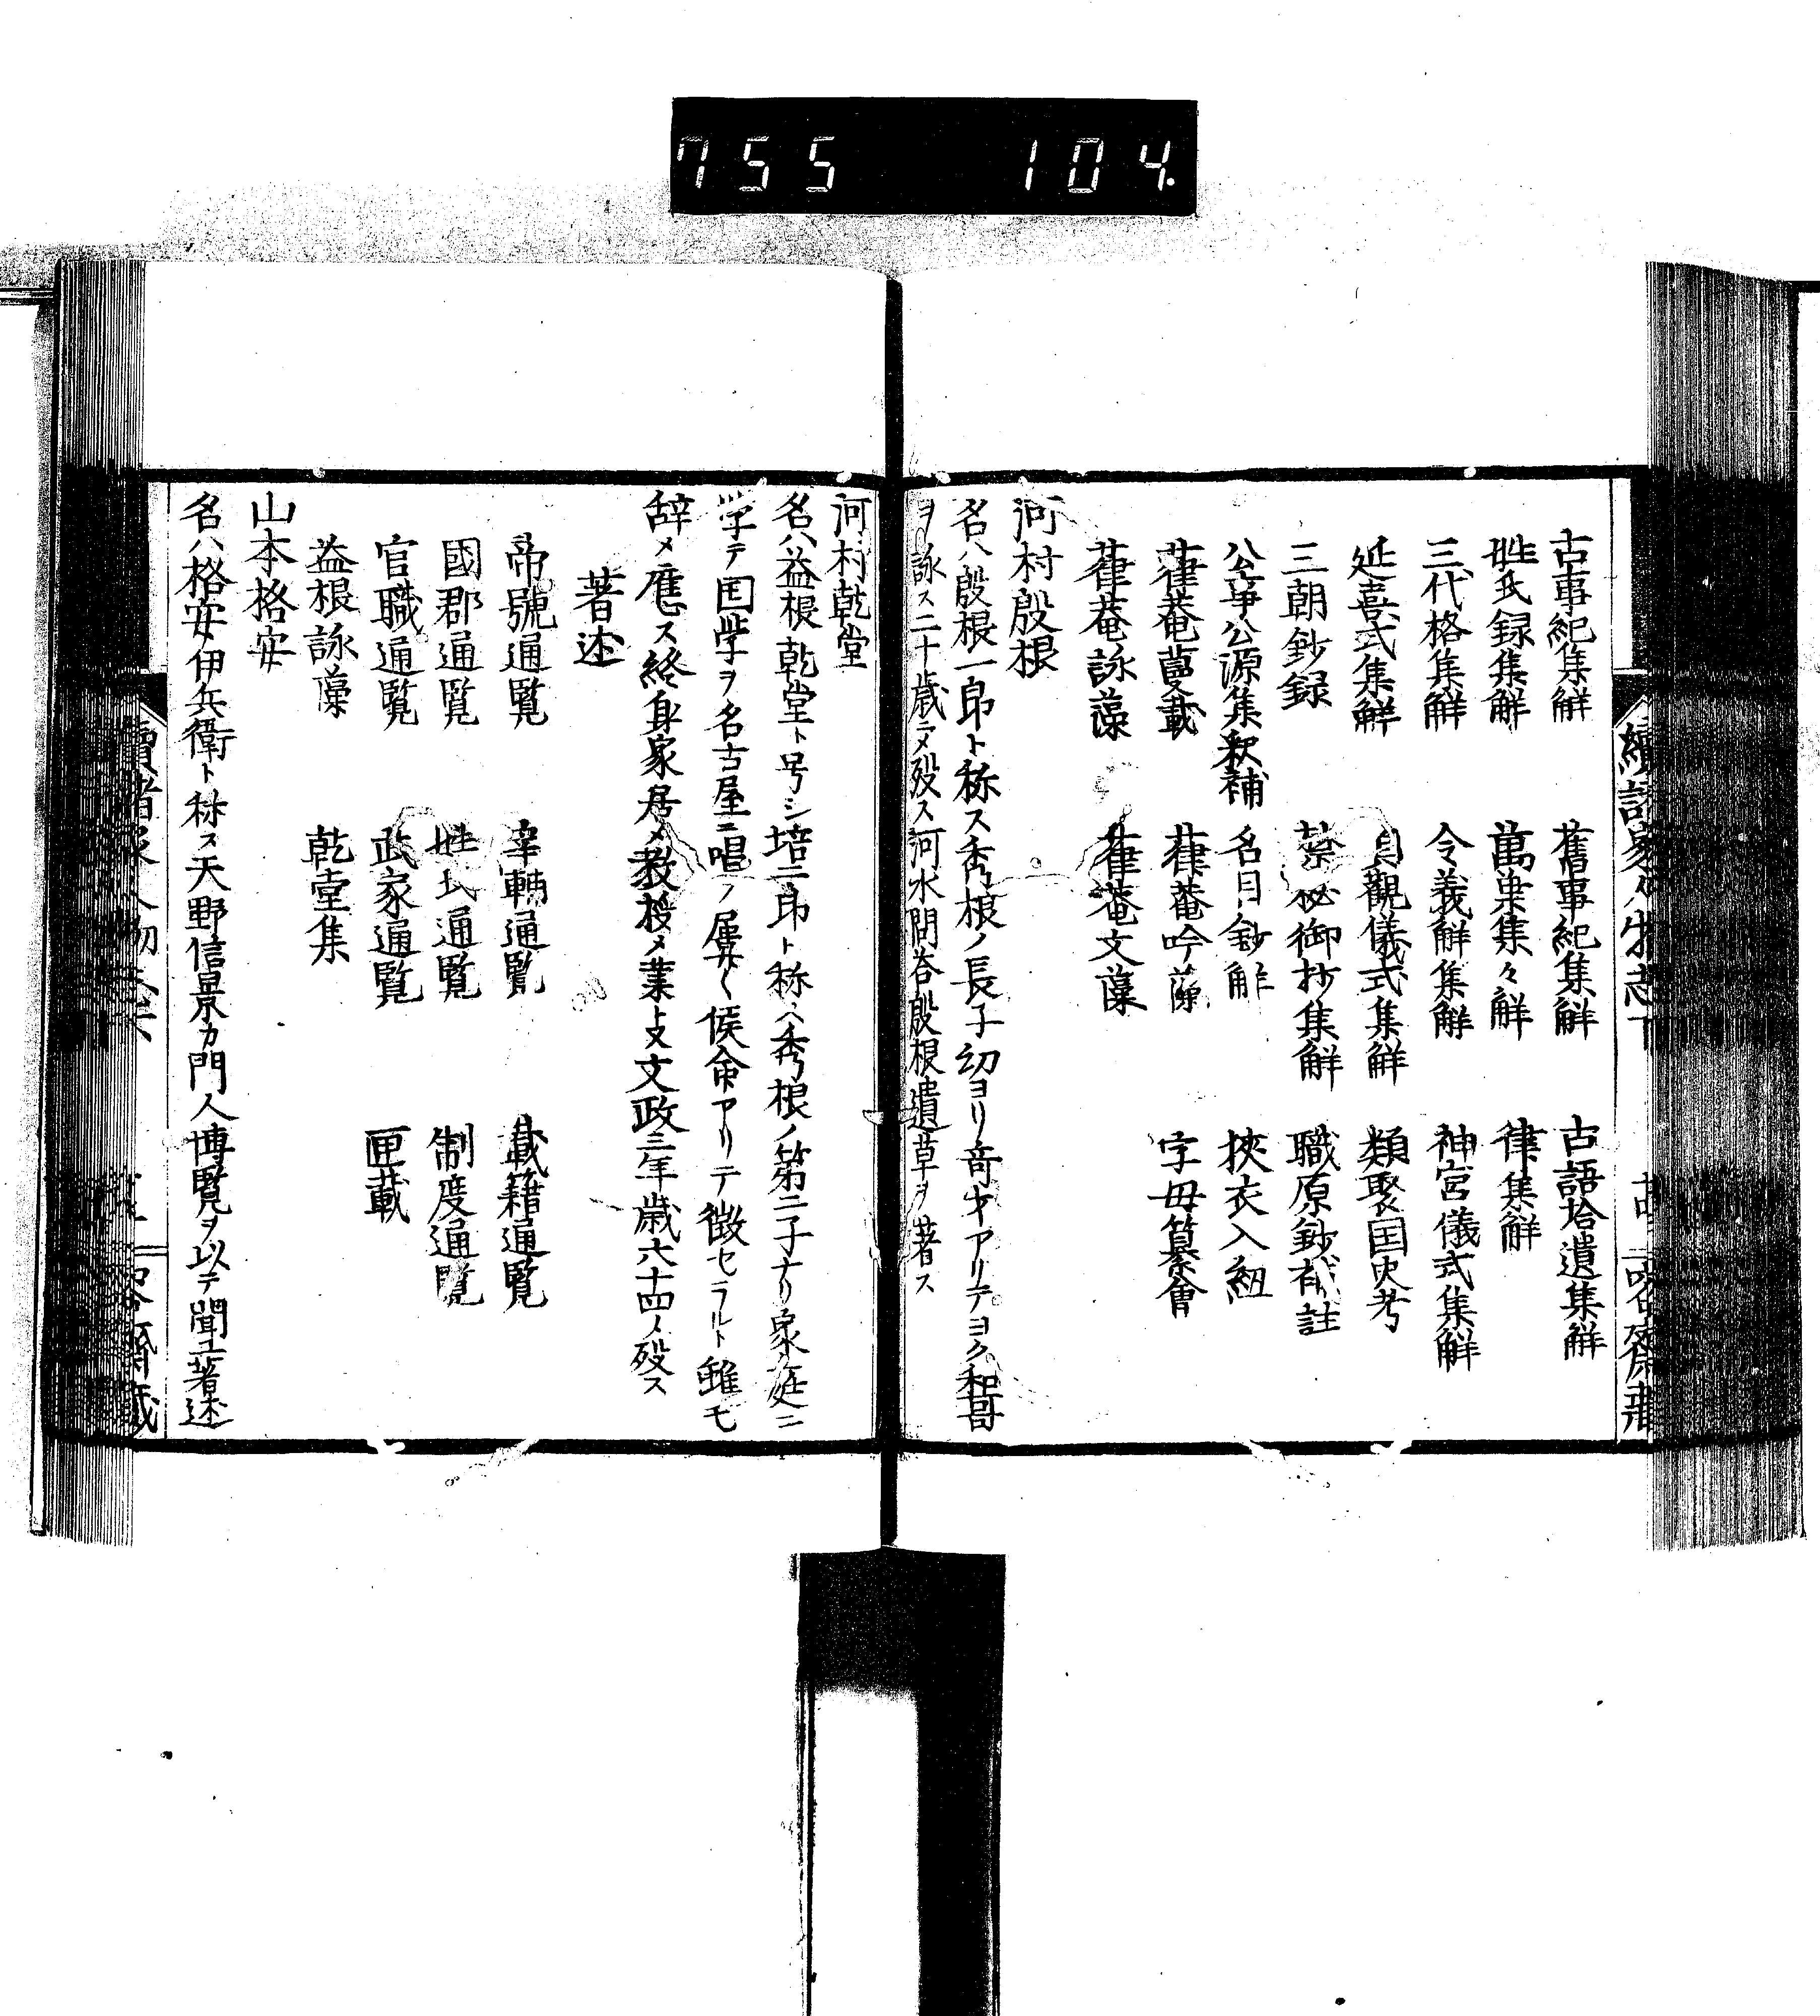 755 104
古事紀集解 舊事紀集解 古語拾遺集解
姓氏録集解 萬葉集々解 律集解
三代格集解 令義解集解 神宮儀式集解
延喜式集解 貞觀儀式集解 類聚国史考
三朝鈔録 禁祕御抄集解 職原鈔補註
公事公源集釈補 名目鈔解 挾衣入紐
葎菴蔓載 葎菴吟藻 字毋纂會
葎菴詠藻 葎菴文藻
河村殷根
名ハ殷根一郎ト称ス秀根ノ長子幼ヨリ奇才アリテヨク和哥
ヲ詠ス二十歳ニ〆歿ス河水問答殷根遺草ヲ著ス
河村乾堂
名ハ益根乾堂ト号シ培二郎ト称ヘ秀根ノ第二子ナリ家庭ニ
学テ国学ヲ名古屋ニ唱ノ屢〱侯命アリテ徴セラルト雖モ
辞〆應ス終身家居〆教授〆業トス文政三年歳六十四ノ歿ス
著述
帝號通覧 宰輔通覧 載籍通覧
國郡通覧 姓氏通覧 制度通覧
官職通覧 武家通覧 匣載
益根詠藻 乾堂集
山本格安
名ハ格安伊兵衛ト称ス天野信景カ門人博覧ヲ以テ聞エ著述